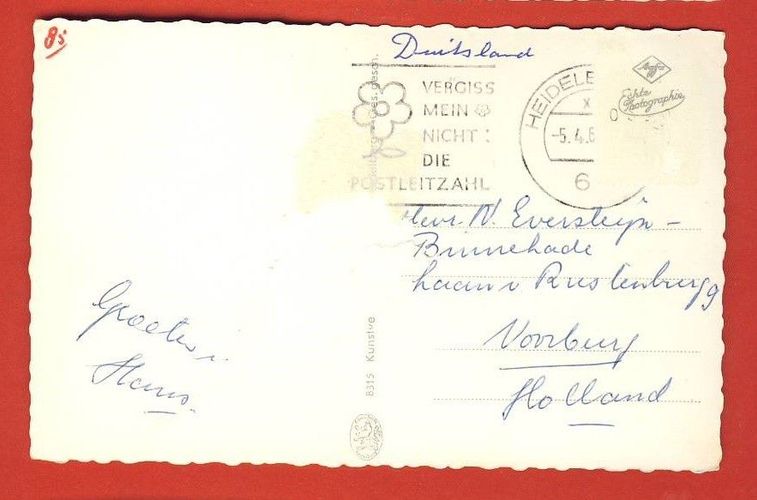 85
Duitsland
VERGISS
MEIN
NICHT :
DIE
POSTLEITZAHL
HEIDELB
-5.4.6
6
Agfa
Echte
Photographie
ges. gesch.
Mevr. N. Eversteijn-
Laan v Rustenburg
Voorburg
Holland
Groeten
Hans.
8315 Kunstve